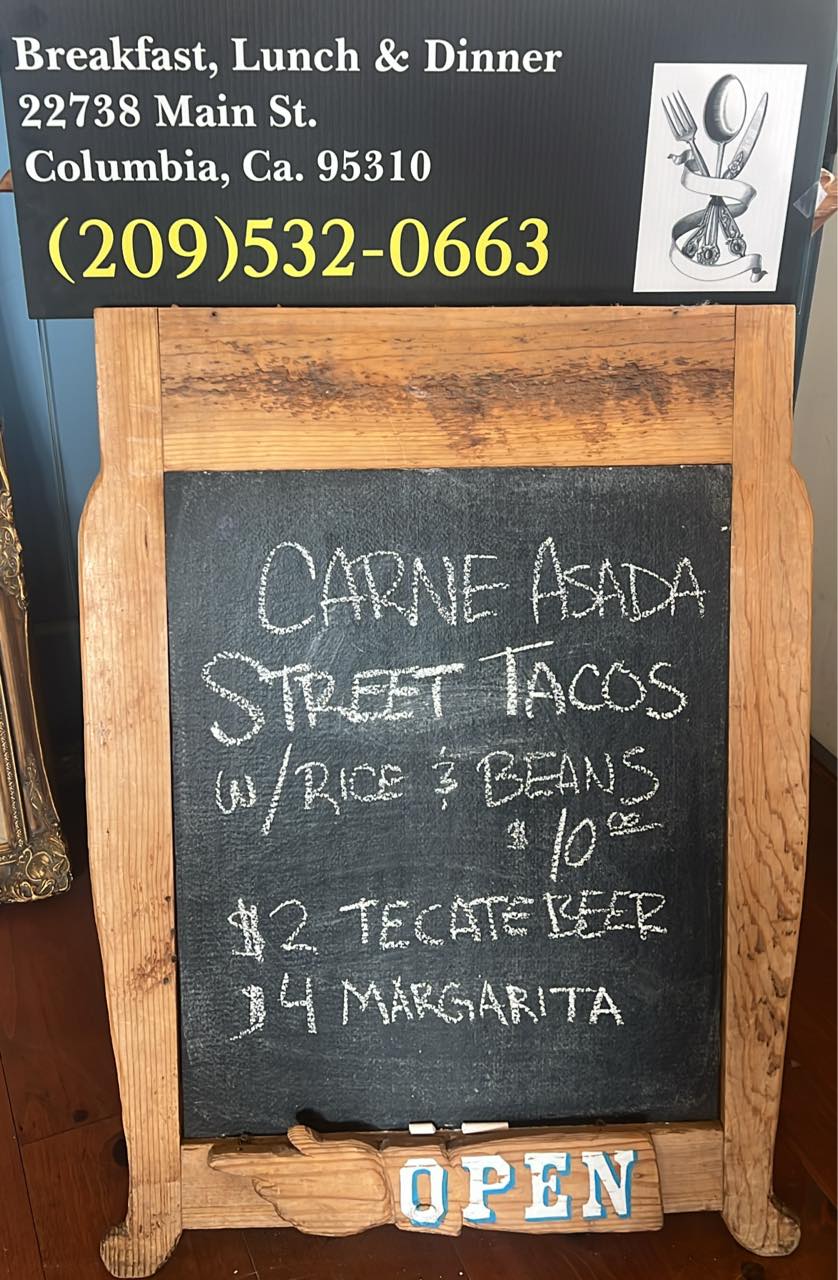 Breakfast, Lunch & Dinner
22738 Main St.
Columbia, Ca. 95310
(209)532-0663
CARNE ASADA
STREET TACOS
W/RICE & BEANS
$10.00
$2 TECATE BEER
$4 MARGARITA
OPEN